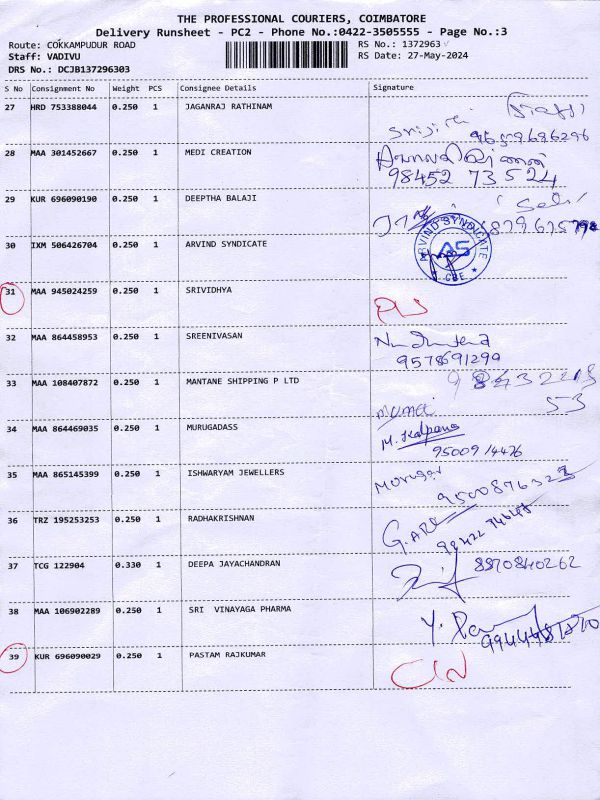 THE PROFESSIONAL COURIERS, COIMBATORE
Delivery Runsheet - PC2 - Phone No.:0422-3505555 - Page No.:3
Route: COKKAMPUDUR ROAD RS No.: 1372963
Staff: VADIVU RS Date: 27-May-2024
DRS No.: DCJB137296303
S No Consignment No Weight PCS Consignee Details Signature
27 HRD 753388044 0.250 1 JAGANRAJ RATHINAM
28 MAA 301452667 0.250 1 MEDI CREATION
98452 73524
29 KUR 696090190 0.250 1 DEEPTHA BALAJI
30 IXM 506426704 0.250 1 ARVIND SYNDICATE
ARVIND SYNDICATE AS CBE.
31 MAA 945024259 0.250 1 SRIVIDHYA
32 MAA 864458953 0.250 1 SREENIVASAN
9578691299
33 MAA 108407872 0.250 1 MANTANE SHIPPING P LTD
53
34 MAA 864469035 0.250 1 MURUGADASS
M. Kalpana
35 MAA 865145399 0.250 1 ISHWARYAM JEWELLERS
36 TRZ 195253253 0.250 1 RADHAKRISHNAN
37 TCG 122904 0.330 1 DEEPA JAYACHANDRAN
8870840262
38 MAA 106902289 0.250 1 SRI VINAYAGA PHARMA
39 KUR 696090029 0.250 1 PASTAM RAJKUMAR